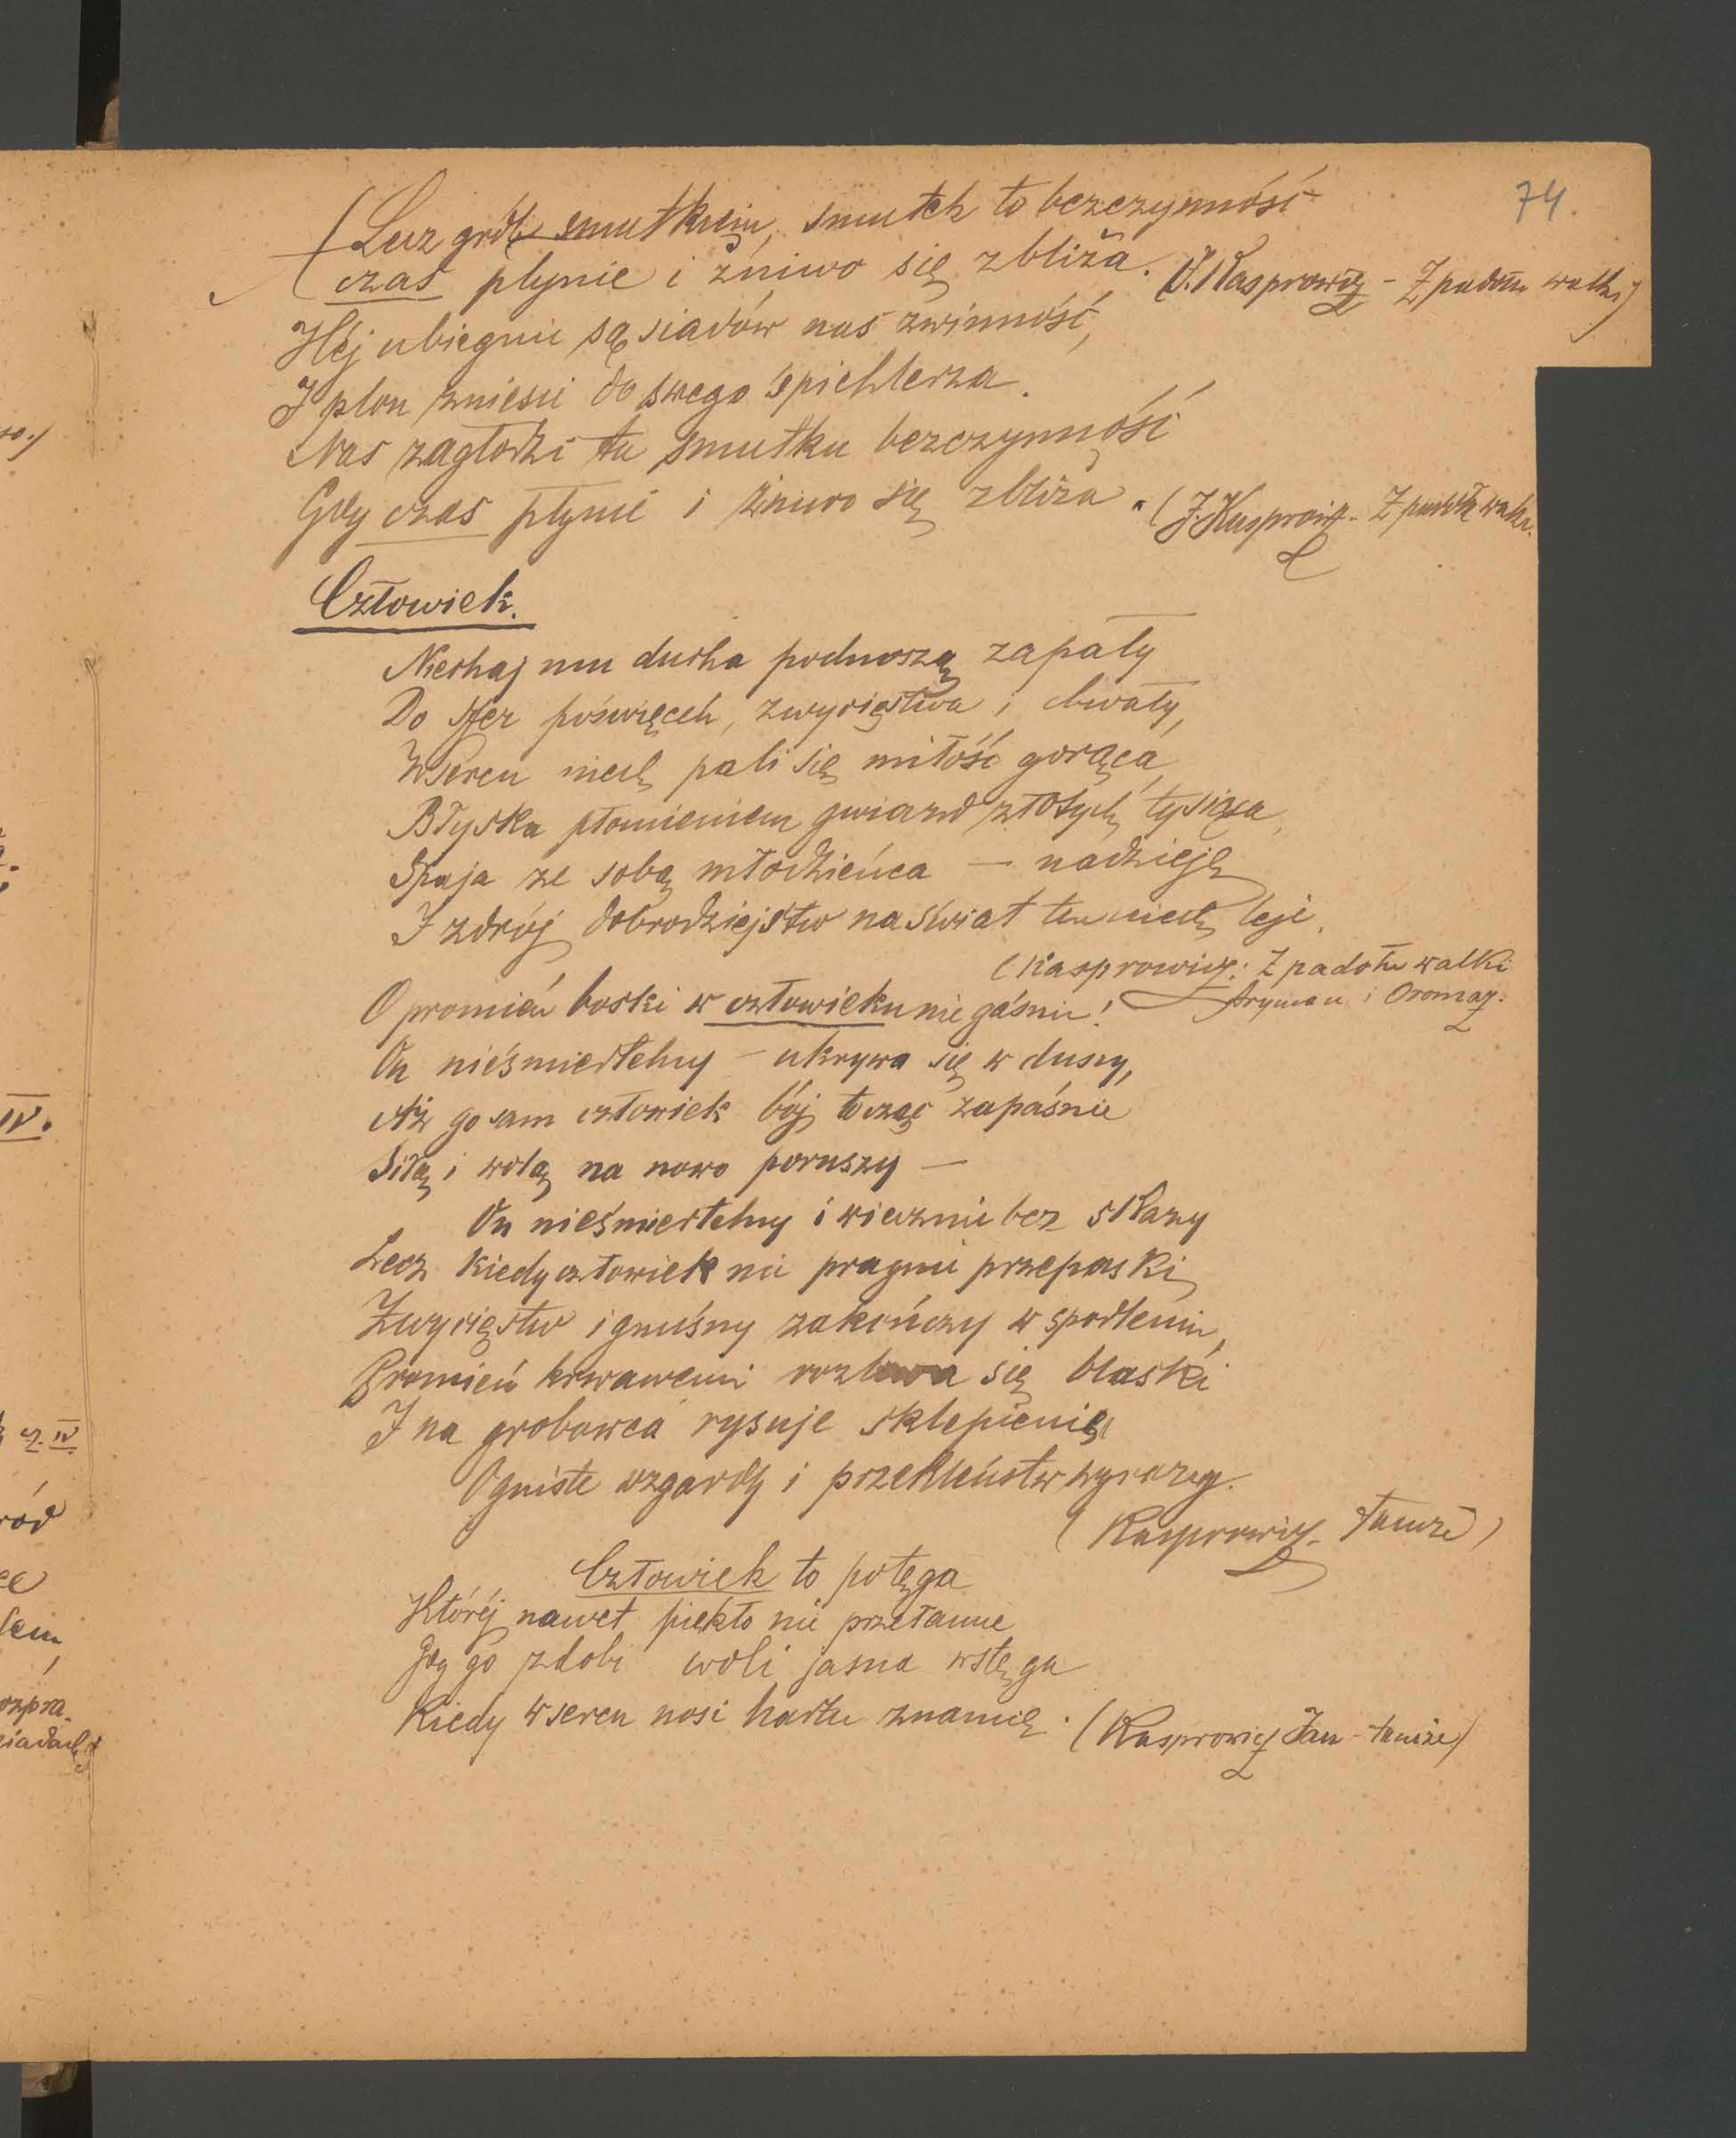 74.
(Lecz grób smutkiem, smutek to bezczynność
czas płynie i żniwo się zbliża. (J. Kasprowicz - Z padołu walki)
Hej ubiegnie sąsiadów nas zwinność,
I plon zniesie do swego śpichlerza.
Nas zagłodzi ta smutku bezczynność
Gdy czas płynie i żniwo się zbliża. (J. Kasprowicz - Z padołu walki.
Człowiek.
Niechaj mu ducha podnoszą zapały
Do sfer poświęceń, zwycięstwa i chwały,
W sercu niech pali się miłość gorąca,
Błyska płomieniem gwiazd złotych tysiąca,
Spaja ze sobą młodzieńca — nadzieję
I zdrój dobrodziejstw na świat ten niech leje.
(Kasprowicz: Z padołu walki
Aryman i Oromaz.
O promień boski w człowieku nie gaśnie!
On nieśmiertelny — ukrywa się w duszy,
Aż go sam człowiek bój tocząc zapaśnie
Siłą i wolą na nowo poruszy —
On nieśmiertelny i wiecznie bez skazy
Lecz kiedy człowiek nie pragnie przepaski
Zwycięstw i gnuśny zakończy w spodleniu,
Promień krwawemi się blaski
I na grobowca rysuje sklepienie
Ogniste wzgardy i przekleństw wyrazy.
(Kasprowicz - Tamże)
Człowiek to potęga
Której nawet piekło nie przełamie
Gdy go zdobi woli jasna wstęga
Kiedy w sercu nosi hartu znamię. (Kasprowicz Jan - tamże)
IV.
cz. IV